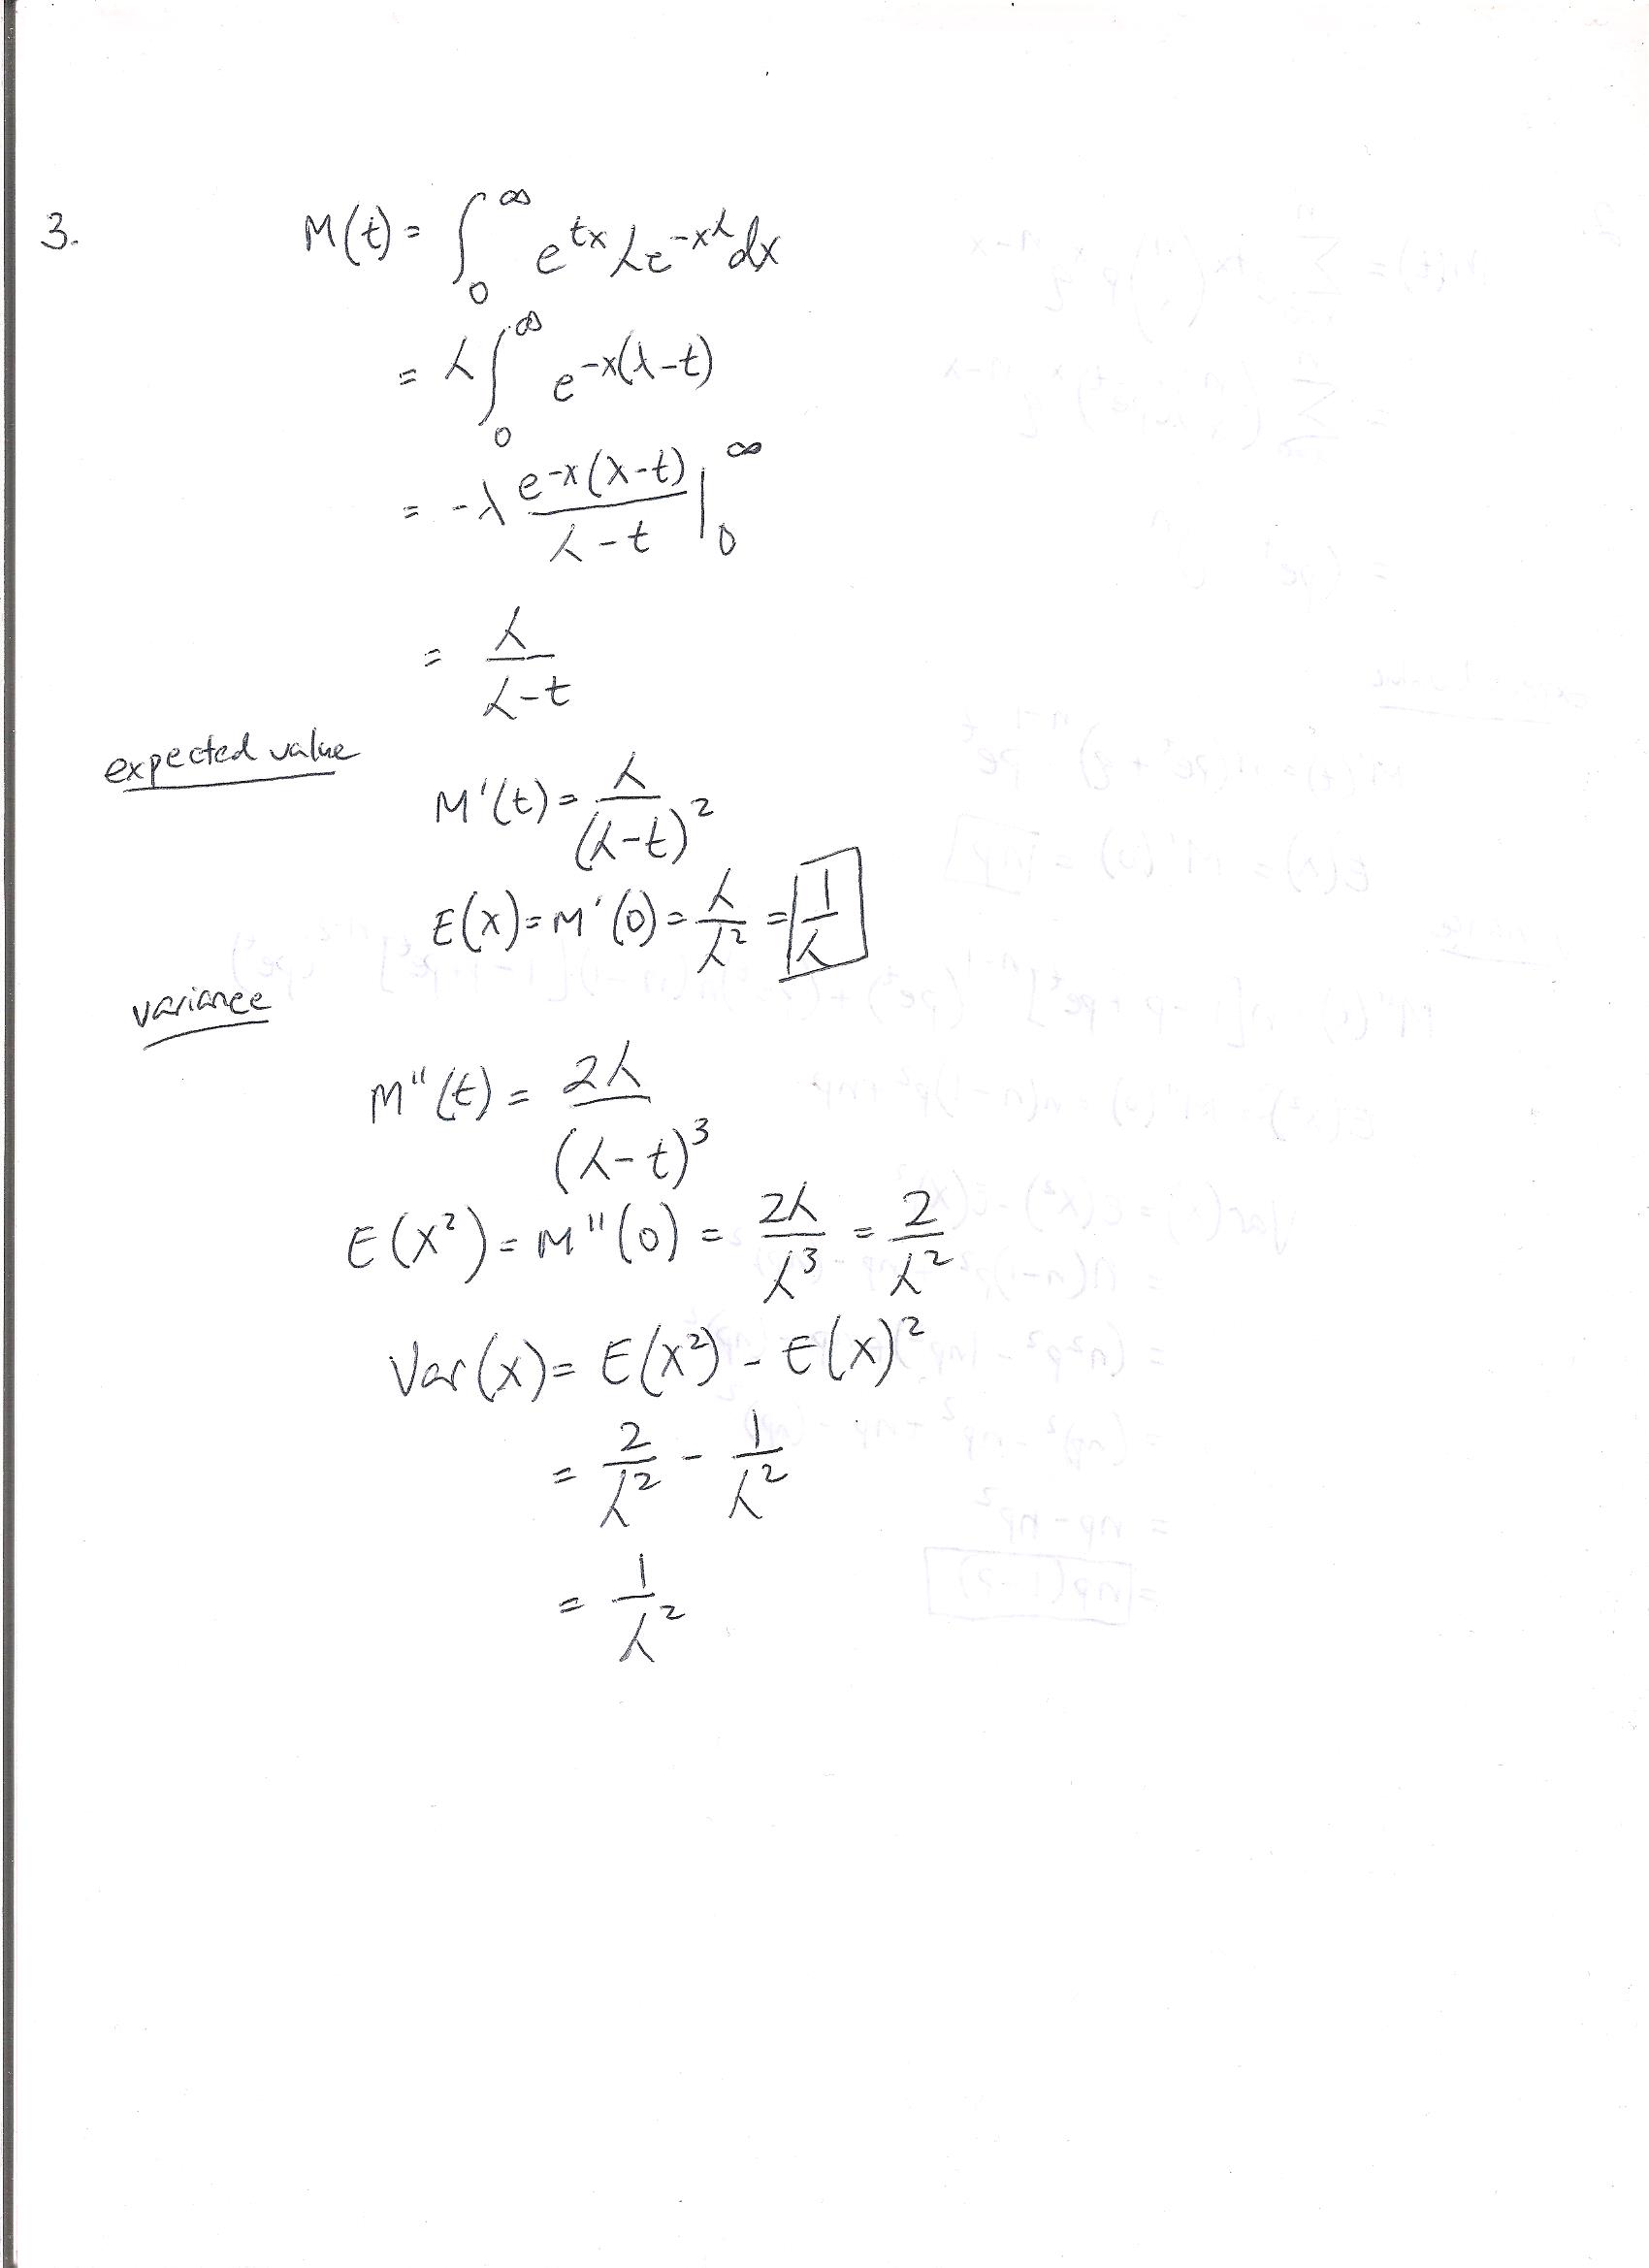 3. M(t) = ∫₀^∞ e^{tx} λe^{-xλ} dx
= λ∫₀^∞ e^{-x(λ-t)}
= -λ e^{-x(λ-t)}/(λ-t) |₀^∞
= λ/(λ-t)
expected value
M'(t) = λ/(λ-t)²
E(x) = M'(0) = λ/λ² = 1/λ
variance
M''(t) = 2λ/(λ-t)³
E(x²) = M''(0) = 2λ/λ³ = 2/λ²
Var(x) = E(x²) - E(x)²
= 2/λ² - 1/λ²
= 1/λ²